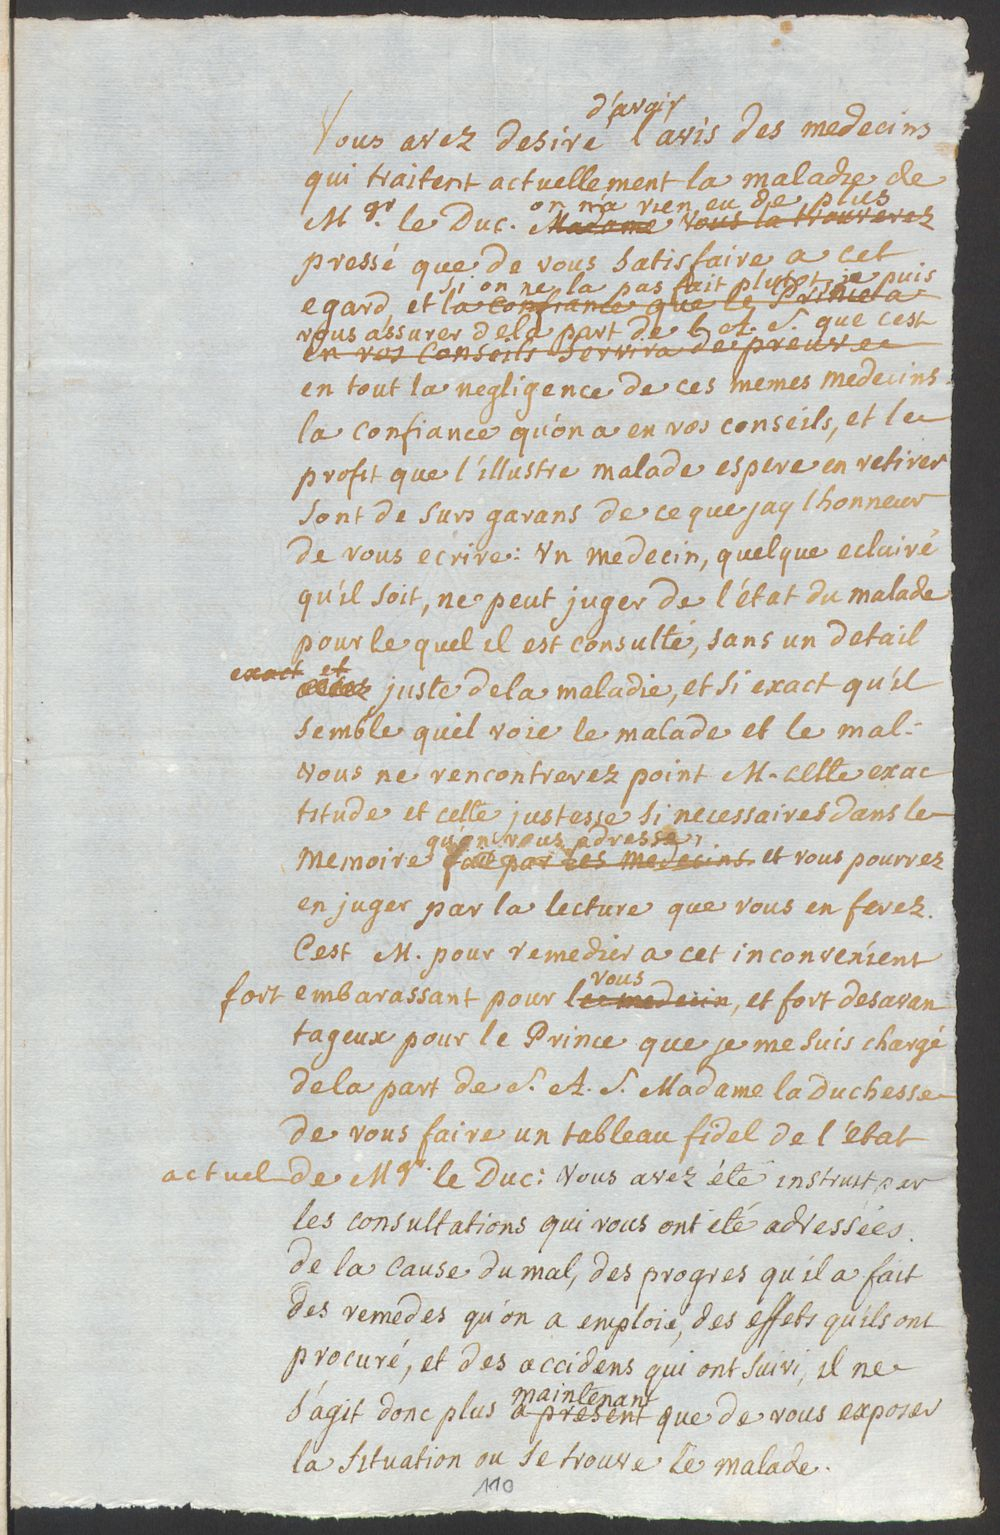 d'avoir
Vous avez desiré l'avis des medecins
qui traitent actuellement la maladie de
on n'a rien eu de plus
Mgr. le Duc. Madame vous la trouverez
pressé que de vous satisfaire a cet
si on ne la pas fait plutot, je puis
egard, et la confiance que le Prince a
vous assurer de la part de L. A. S. que cest
en vos conseils servira de preuve
en tout la negligence de ces memes medecins
la confiance qu'on a en vos conseils, et le
profit que l'illustre malade espere en retirer
sont de surs garans de ce que jay l honneur
de vous ecrire: Un medecin, quelque eclairé
qu'il soit, ne peut juger de l'état du malade
pour le quel il est consulté, sans un detail
exact et
juste de la maladie, et si exact qu'il
semble quil voie le malade et le mal.
Vous ne rencontrerez point M. cette exac
titude et cette justesse si necessaires dans le
qu'on vous adresse,
memoire fait par les medecins et vous pourrez
en juger par la lecture que vous en ferez.
C'est M. pour remedier a cet inconvenient
vous
fort embarassant pour le medecin, et fort desavan
tageux pour le Prince que je me suis chargé
de la part de S. A. S. Madame la Duchesse
de vous faire un tableau fidel de l'état
actuel de Mgr. le Duc: Vous avez été instruit par
les consultations qui vous ont été adressées.
de la cause du mal, des progres qu'il a fait
des remedes qu'on a emploié, des effets qu'ils ont
procuré, et des accidens qui ont suivi, il ne
maintenant
s'agit donc plus a present que de vous exposer
la situation ou se trouve le malade.
110